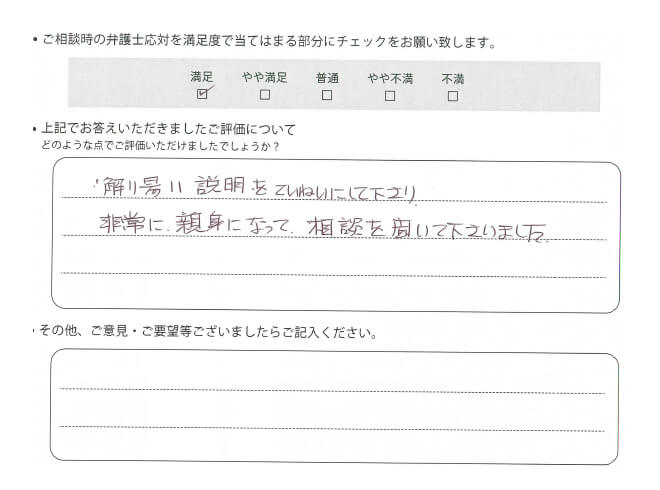 • ご相談時の弁護士応対を満足度で当てはまる部分にチェックをお願い致します。
満足 やや満足 普通 やや不満 不満
☑ ☐ ☐ ☐ ☐
• 上記でお答えいただきましたご評価について
どのような点でご評価いただけましたでしょうか？
解り易い説明をていねいにして下さり
非常に、親身になって、相談を聞いて下さいました。
・その他、ご意見・ご要望等ございましたらご記入ください。